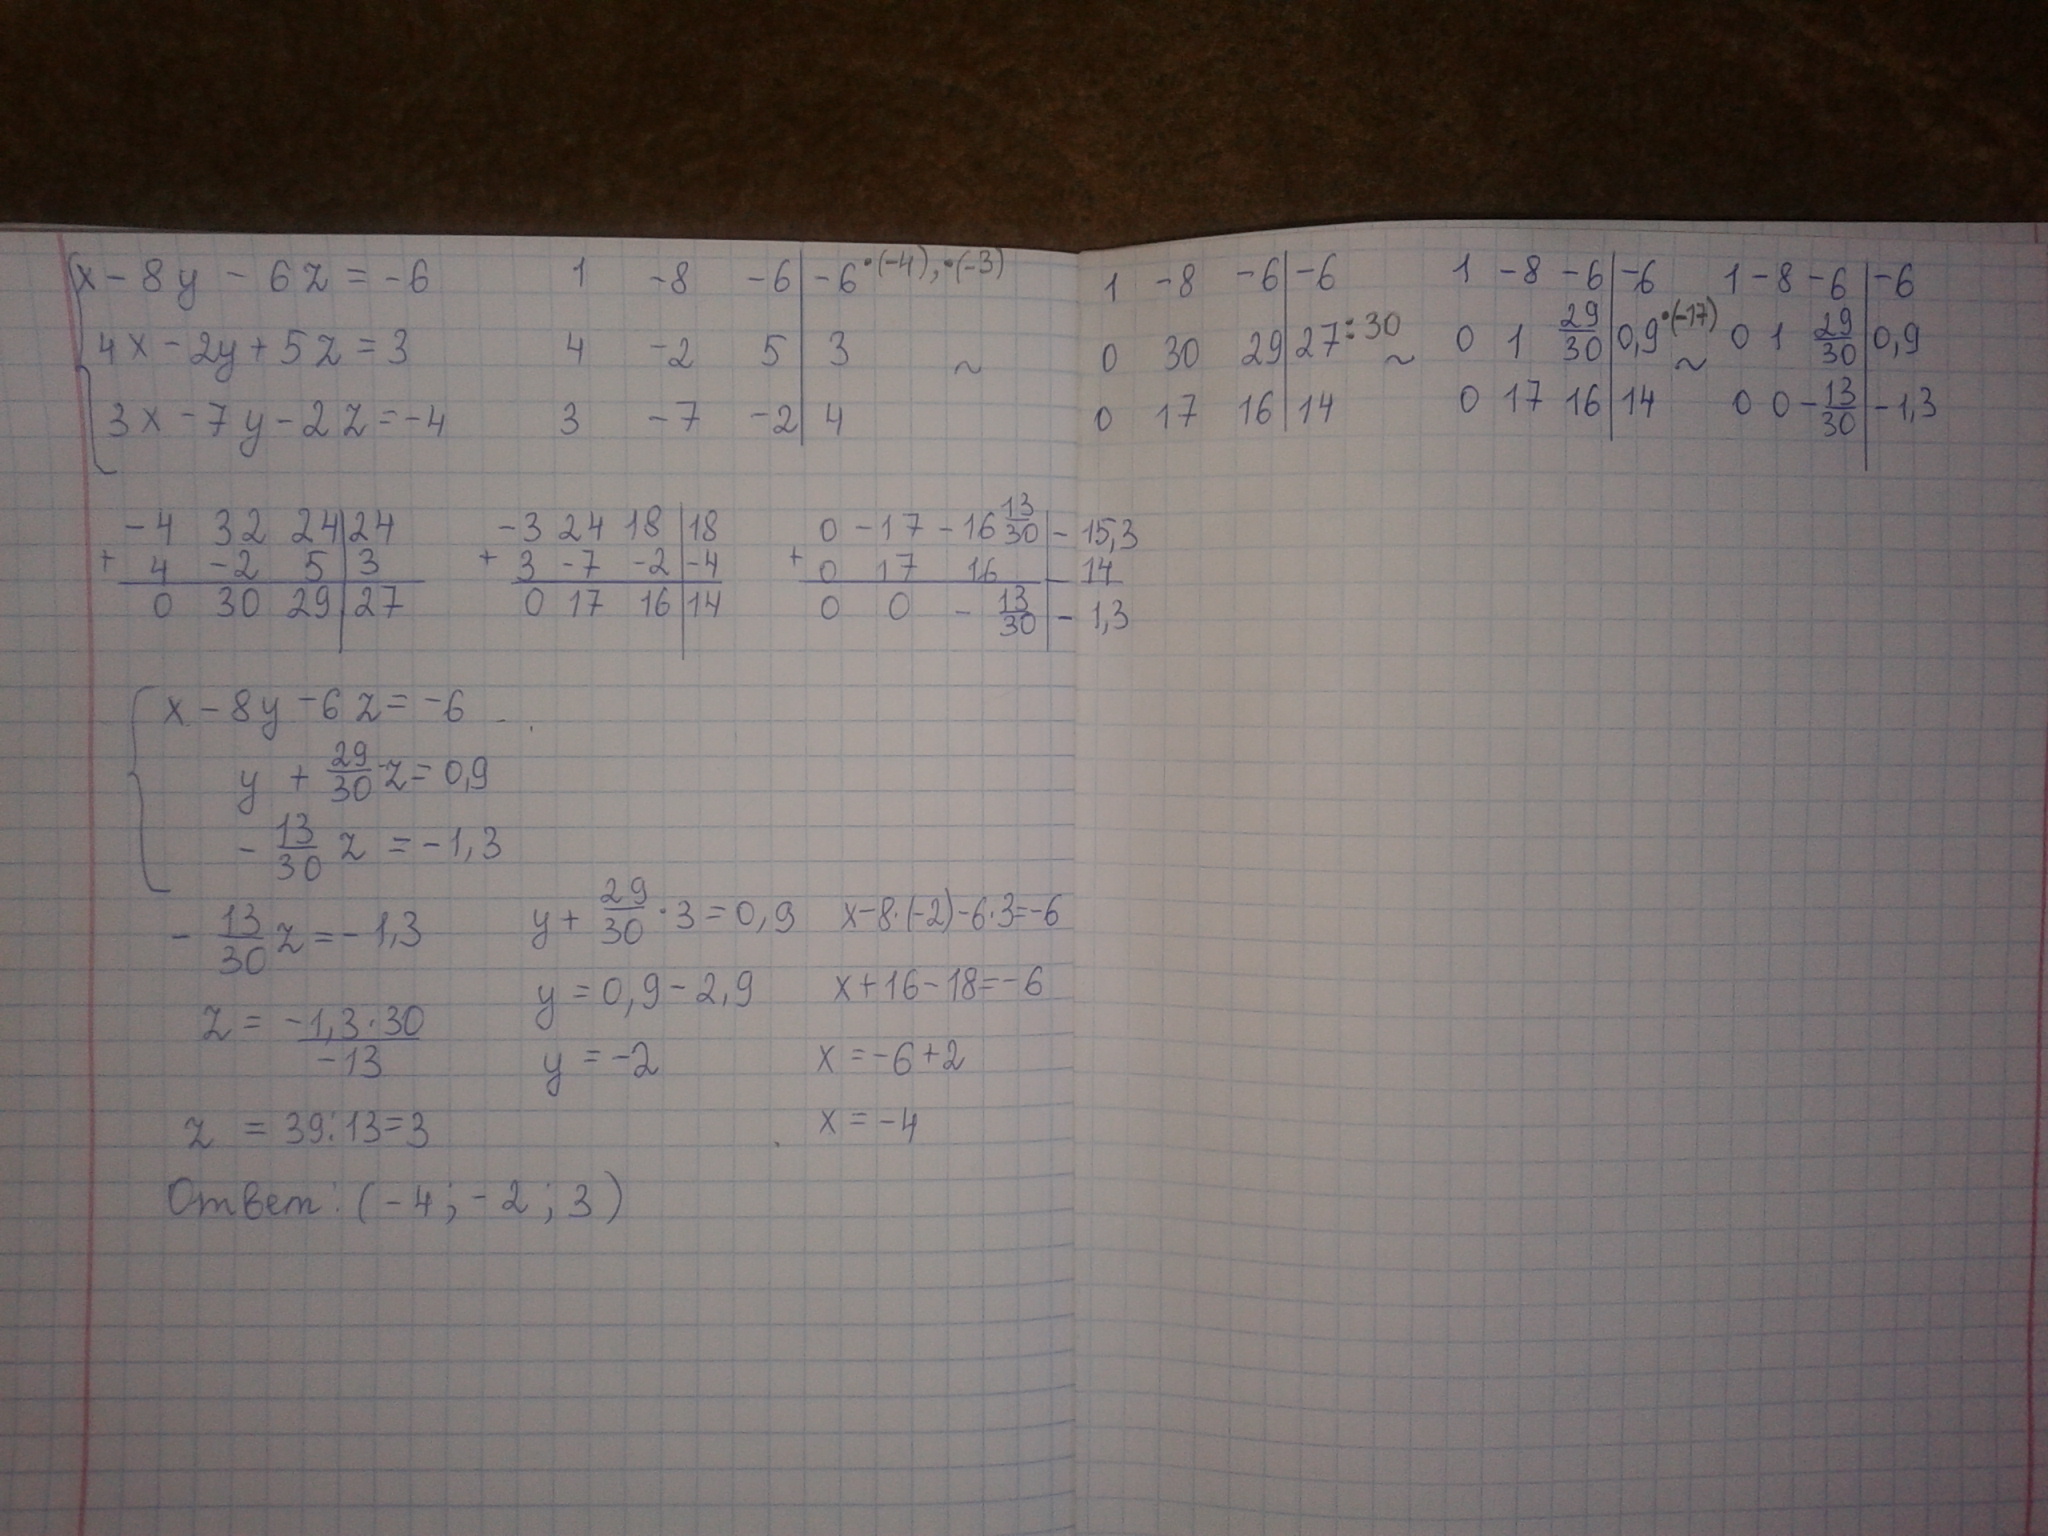 x - 8y - 6z = -6
4x - 2y + 5z = 3
3x - 7y - 2z = -4
1 -8 -6 | -6 ·(-4), ·(-3)
4 -2 5 | 3 ~
3 -7 -2 | 4
1 -8 -6 | -6
0 30 29 | 27 :30 ~
0 17 16 | 14
1 -8 -6 | -6
0 1 29/30 | 0,9 ·(-17) ~
0 17 16 | 14
1 -8 -6 | -6
0 1 29/30 | 0,9
0 0 -13/30 | -1,3
-4 32 24 | 24
+ 4 -2 5 | 3
0 30 29 | 27
-3 24 18 | 18
+ 3 -7 -2 | -4
0 17 16 | 14
0 -17 -16 13/30 | -15,3
+ 0 17 16 | 14
0 0 -13/30 | -1,3
x - 8y - 6z = -6
y + 29/30 z = 0,9
- 13/30 z = -1,3
- 13/30 z = -1,3
z = -1,3·30/-13
z = 39:13=3
y + 29/30 · 3 = 0,9
y = 0,9 - 2,9
y = -2
x - 8·(-2) - 6·3 = -6
x + 16 - 18 = -6
x = -6 + 2
x = -4
Ответ: (-4; -2; 3)